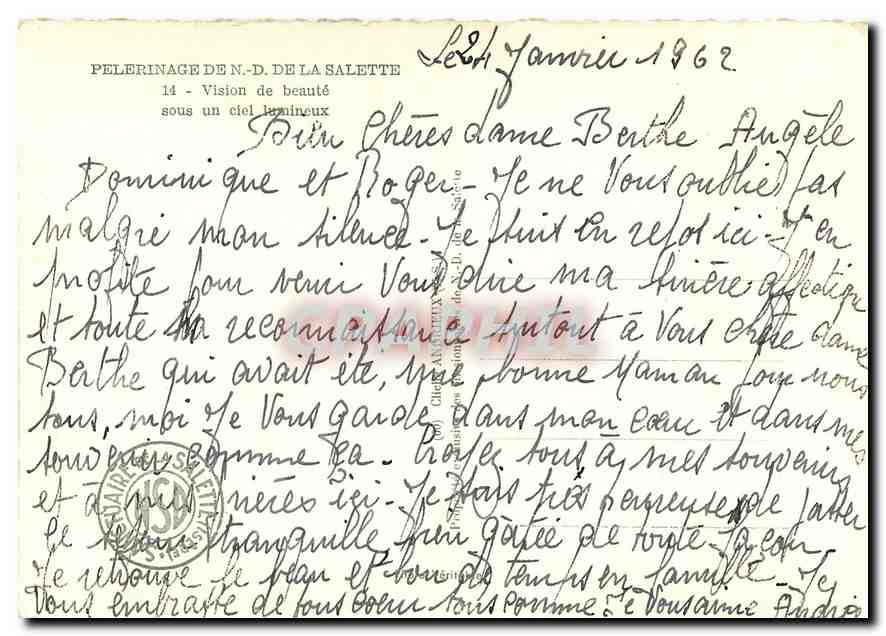 Le 24 Janvier 1962
PELERINAGE DE N.-D. DE LA SALETTE
14 - Vision de beauté
sous un ciel lumineux
Bien Chères dame Berthe Angèle
Dominique et Roger - Je ne Vous oublie pas
malgré mon silence - Je suis en repos ici - J'en
profite pour venir Vous dire ma sincère affection
et toute ma reconnaissance surtout à Vous chère dame
Berthe qui avait été, une bonne Maman pour nous
tous, moi Je Vous garde dans mon cœur et dans mes
souvenirs comme ça - Croyez tous à mes souvenirs
et à mes prières ici - Je suis très heureuse de passer
ce séjour tranquille bien gâtée de toute façon
Je retrouve le beau et bon temps en famille - Je
Vous embrasse de tout coeur tous comme Je Vous aime
(60) Cliché ANDRIEUX
Propriété exclusive des Missionnaires de N.-D. de la Salette
CPARAMA
SANCTUAIRE LA SALETTE (Isère)
NSD